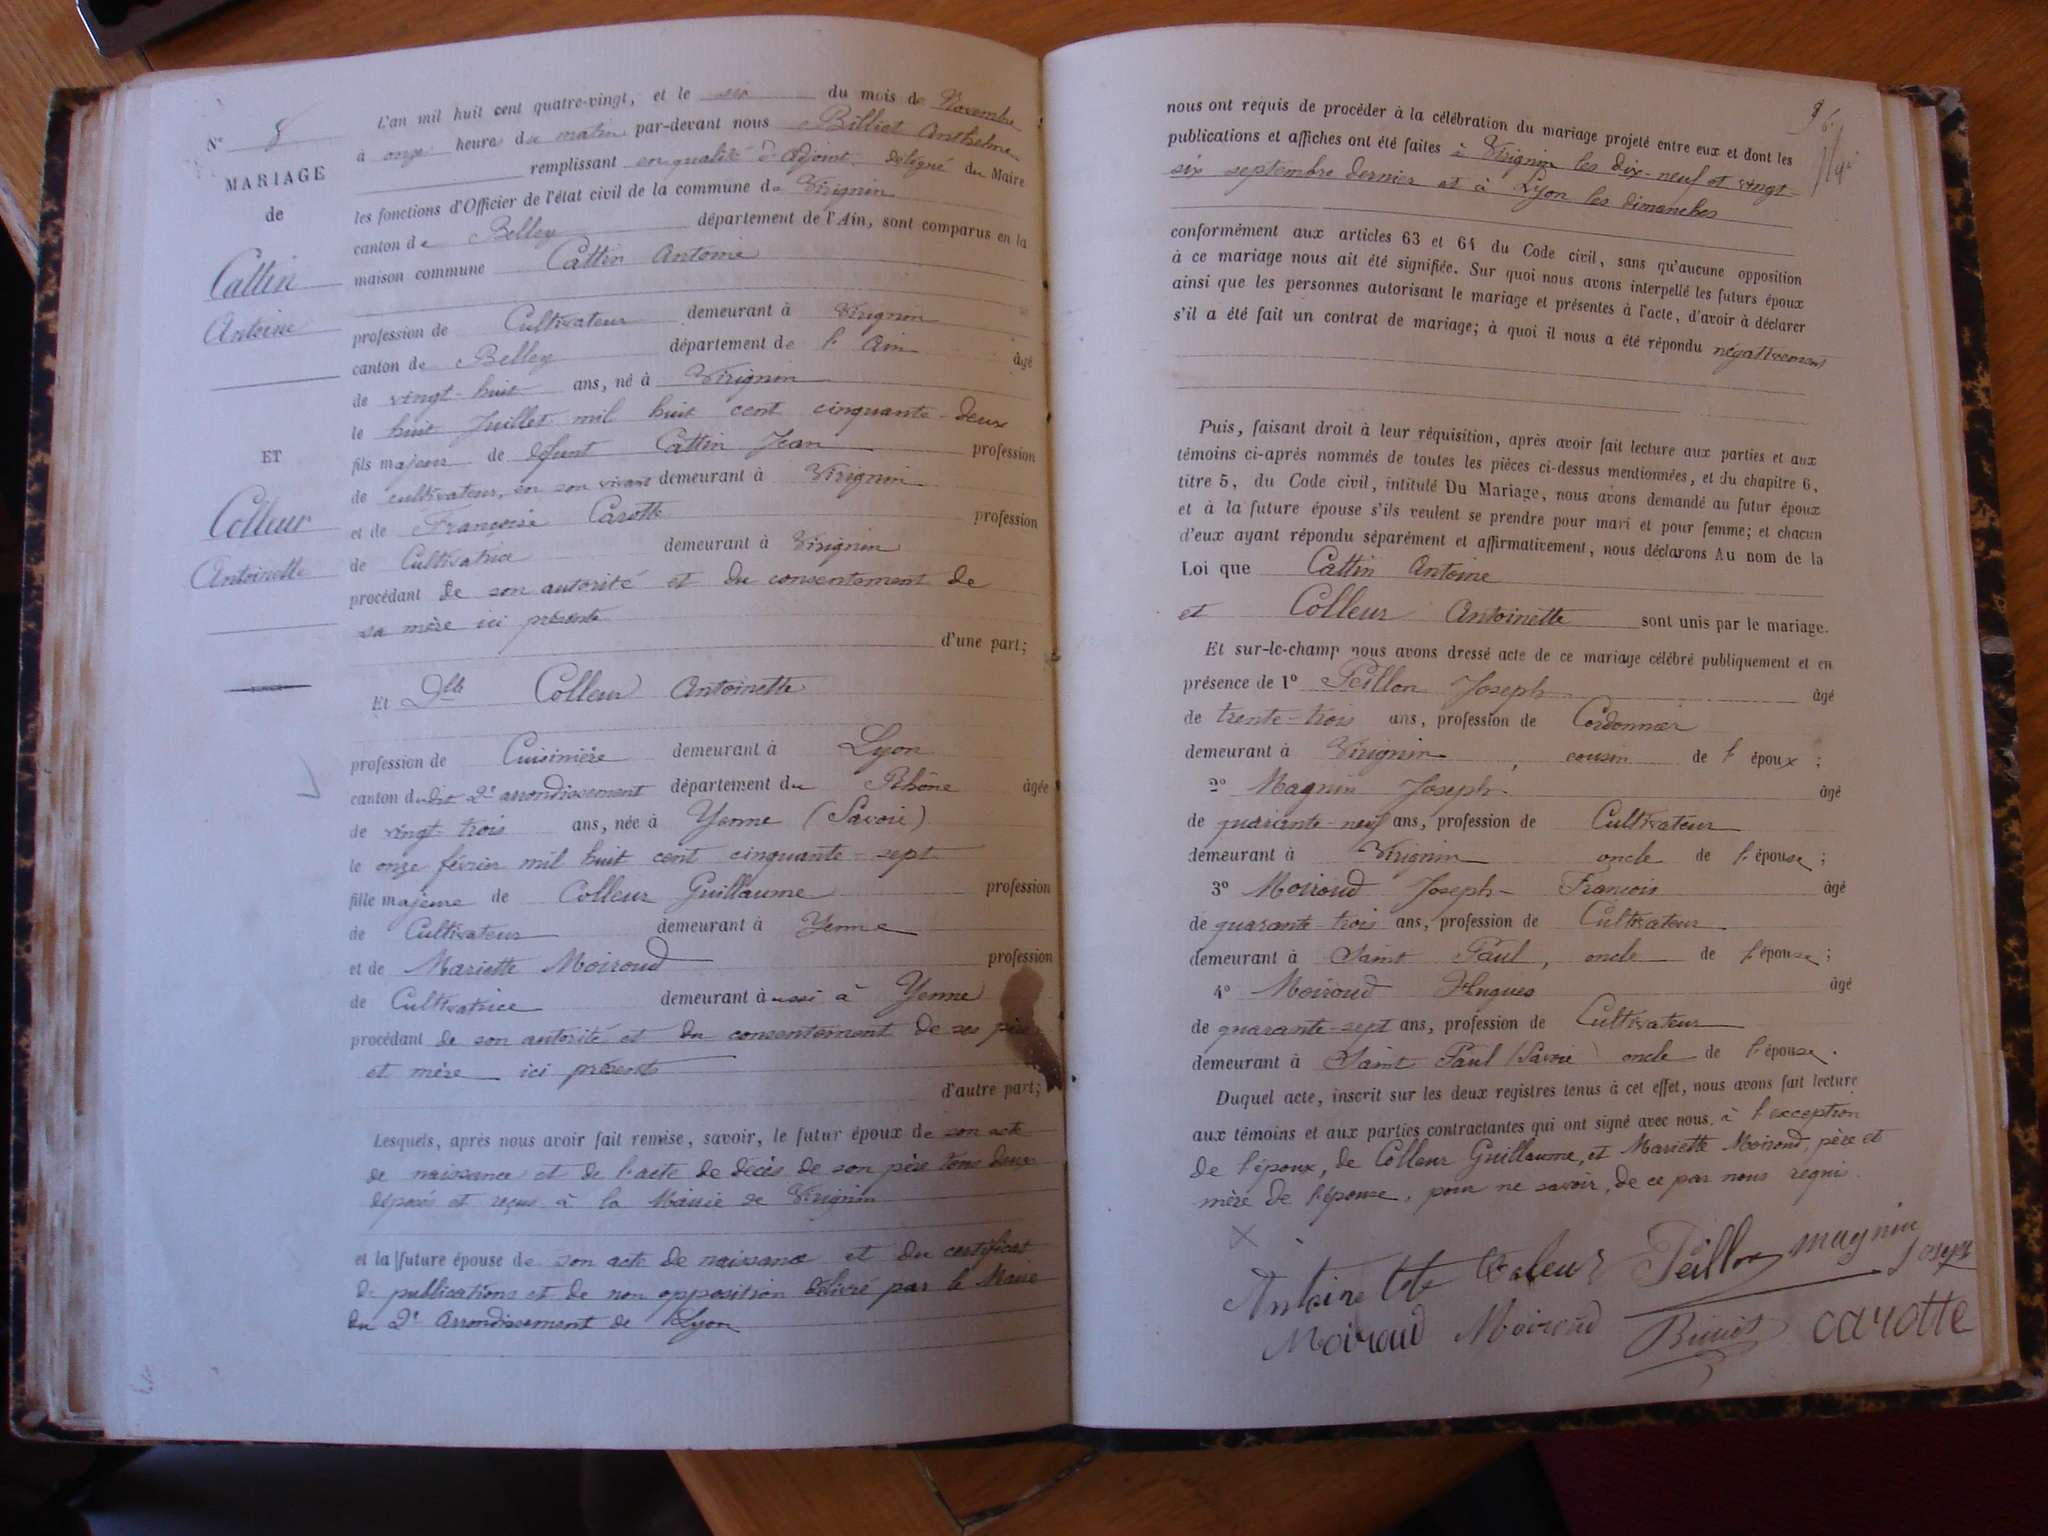 Nº 8
MARIAGE
de
Cattin
Antoine
ET
Colleur
Antoinette
L'an mil huit cent quatre-vingt, et le six du mois de Novembre
à onze heure du matin par-devant nous Billiet Anthelme
remplissant en qualité d'adjoint délégué du Maire
les fonctions d'Officier de l'état civil de la commune de Virignin
canton de Belley département de l'Ain, sont comparus en la
maison commune Cattin Antoine
profession de Cultivateur demeurant à Virignin
canton de Belley département de l'Ain âgé
de vingt-huit ans, né à Virignin
le huit Juillet mil huit cent cinquante-deux
fils majeur de défunt Cattin Jean profession
de cultivateur, en son vivant demeurant à Virignin
et de Françoise Carotte profession
de Cultivatrice demeurant à Virignin
procédant de son autorité et du consentement de
sa mère ici présente
d'une part;
Et Dlle Colleur Antoinette
profession de Cuisinière demeurant à Lyon
canton dudit 2e arrondissement département du Rhône âgée
de vingt-trois ans, née à Yenne (Savoie)
le onze février mil huit cent cinquante-sept
fille majeure de Colleur Guillaume profession
de Cultivateur demeurant à Yenne
et de Mariette Moiroud profession
de Cultivatrice demeurant aussi à Yenne
procédant de son autorité et du consentement de ses père
et mère ici présents
d'autre part;
Lesquels, après nous avoir fait remise, savoir, le futur époux de son acte
de naissance et de l'acte de décès de son père tous deux
déposés et reçus à la Mairie de Virignin
et la future épouse de son acte de naissance et du certificat
de publications et de non opposition délivré par le Maire
du 2e Arrondissement de Lyon
nous ont requis de procéder à la célébration du mariage projeté entre eux et dont les
publications et affiches ont été faites à Virignin les dix-neuf et vingt-
six septembre dernier et à Lyon les dimanches
conformément aux articles 63 et 64 du Code civil, sans qu'aucune opposition
à ce mariage nous ait été signifiée. Sur quoi nous avons interpellé les futurs époux
ainsi que les personnes autorisant le mariage et présentes à l'acte, d'avoir à déclarer
s'il a été fait un contrat de mariage; à quoi il nous a été répondu négativement
Puis, faisant droit à leur réquisition, après avoir fait lecture aux parties et aux
témoins ci-après nommés de toutes les pièces ci-dessus mentionnées, et du chapitre 6,
titre 5, du Code civil, intitulé Du Mariage, nous avons demandé au futur époux
et à la future épouse s'ils veulent se prendre pour mari et pour femme; et chacun
d'eux ayant répondu séparément et affirmativement, nous déclarons Au nom de la
Loi que Cattin Antoine
et Colleur Antoinette sont unis par le mariage.
Et sur-le-champ nous avons dressé acte de ce mariage célébré publiquement et en
présence de 1º Peillon Joseph âgé
de trente-trois ans, profession de Cordonnier
demeurant à Virignin, cousin de l'époux;
2º Magnin Joseph âgé
de quarante-neuf ans, profession de Cultivateur
demeurant à Virignin oncle de l'épouse;
3º Moiroud Joseph-François âgé
de quarante-trois ans, profession de Cultivateur
demeurant à Saint Paul, oncle de l'épouse;
4º Moiroud Hugues âgé
de quarante-sept ans, profession de Cultivateur
demeurant à Saint Paul (Savoie) oncle de l'épouse.
Duquel acte, inscrit sur les deux registres tenus à cet effet, nous avons fait lecture
aux témoins et aux parties contractantes qui ont signé avec nous, à l'exception
de l'époux, de Colleur Guillaume, et Mariette Moiroud, père et
mère de l'épouse, pour ne savoir, de ce par nous requis.
Antoinette Coleur Peillon magnin Joseph
Moiroud Moiroud Billiet carotte